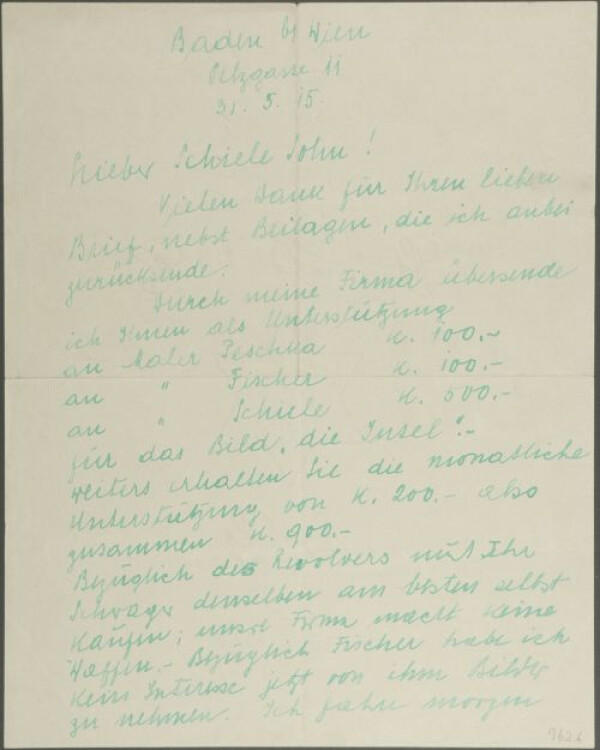 Baden b/ Wien
Pelzgasse 11
31. 5. 15.
Lieber Schiele Sohn!
Vielen Dank für Ihren lieben
Brief, nebst Beilagen, die ich anbei
zurücksende.
Durch meine Firma übersende
ich Ihnen als Unterstützung
an Maler Peschka K. 100.-
an " Fischer K. 100.-
an " Schiele K. 500.-
für das Bild „die Insel".-
weiters erhalten Sie die monatliche
Unterstützung von K. 200.- also
zusammen K. 900.-
Bezüglich des Revolvers muß Ihr
Schwager denselben am besten selbst
kaufen; unsre Firma macht keine
Waffen.- Bezüglich Fischer habe ich
kein Interesse jetzt von ihm Bilder
zu nehmen. Ich fahre morgen